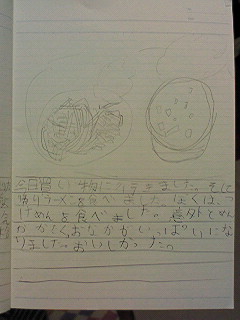 今日買い物に行きました。そして
帰りラーメンを食べました。ぼくは、つ
けめんを食べました。意外とめん
がかたくおなかがいっぱいにな
りました。おいしかった。